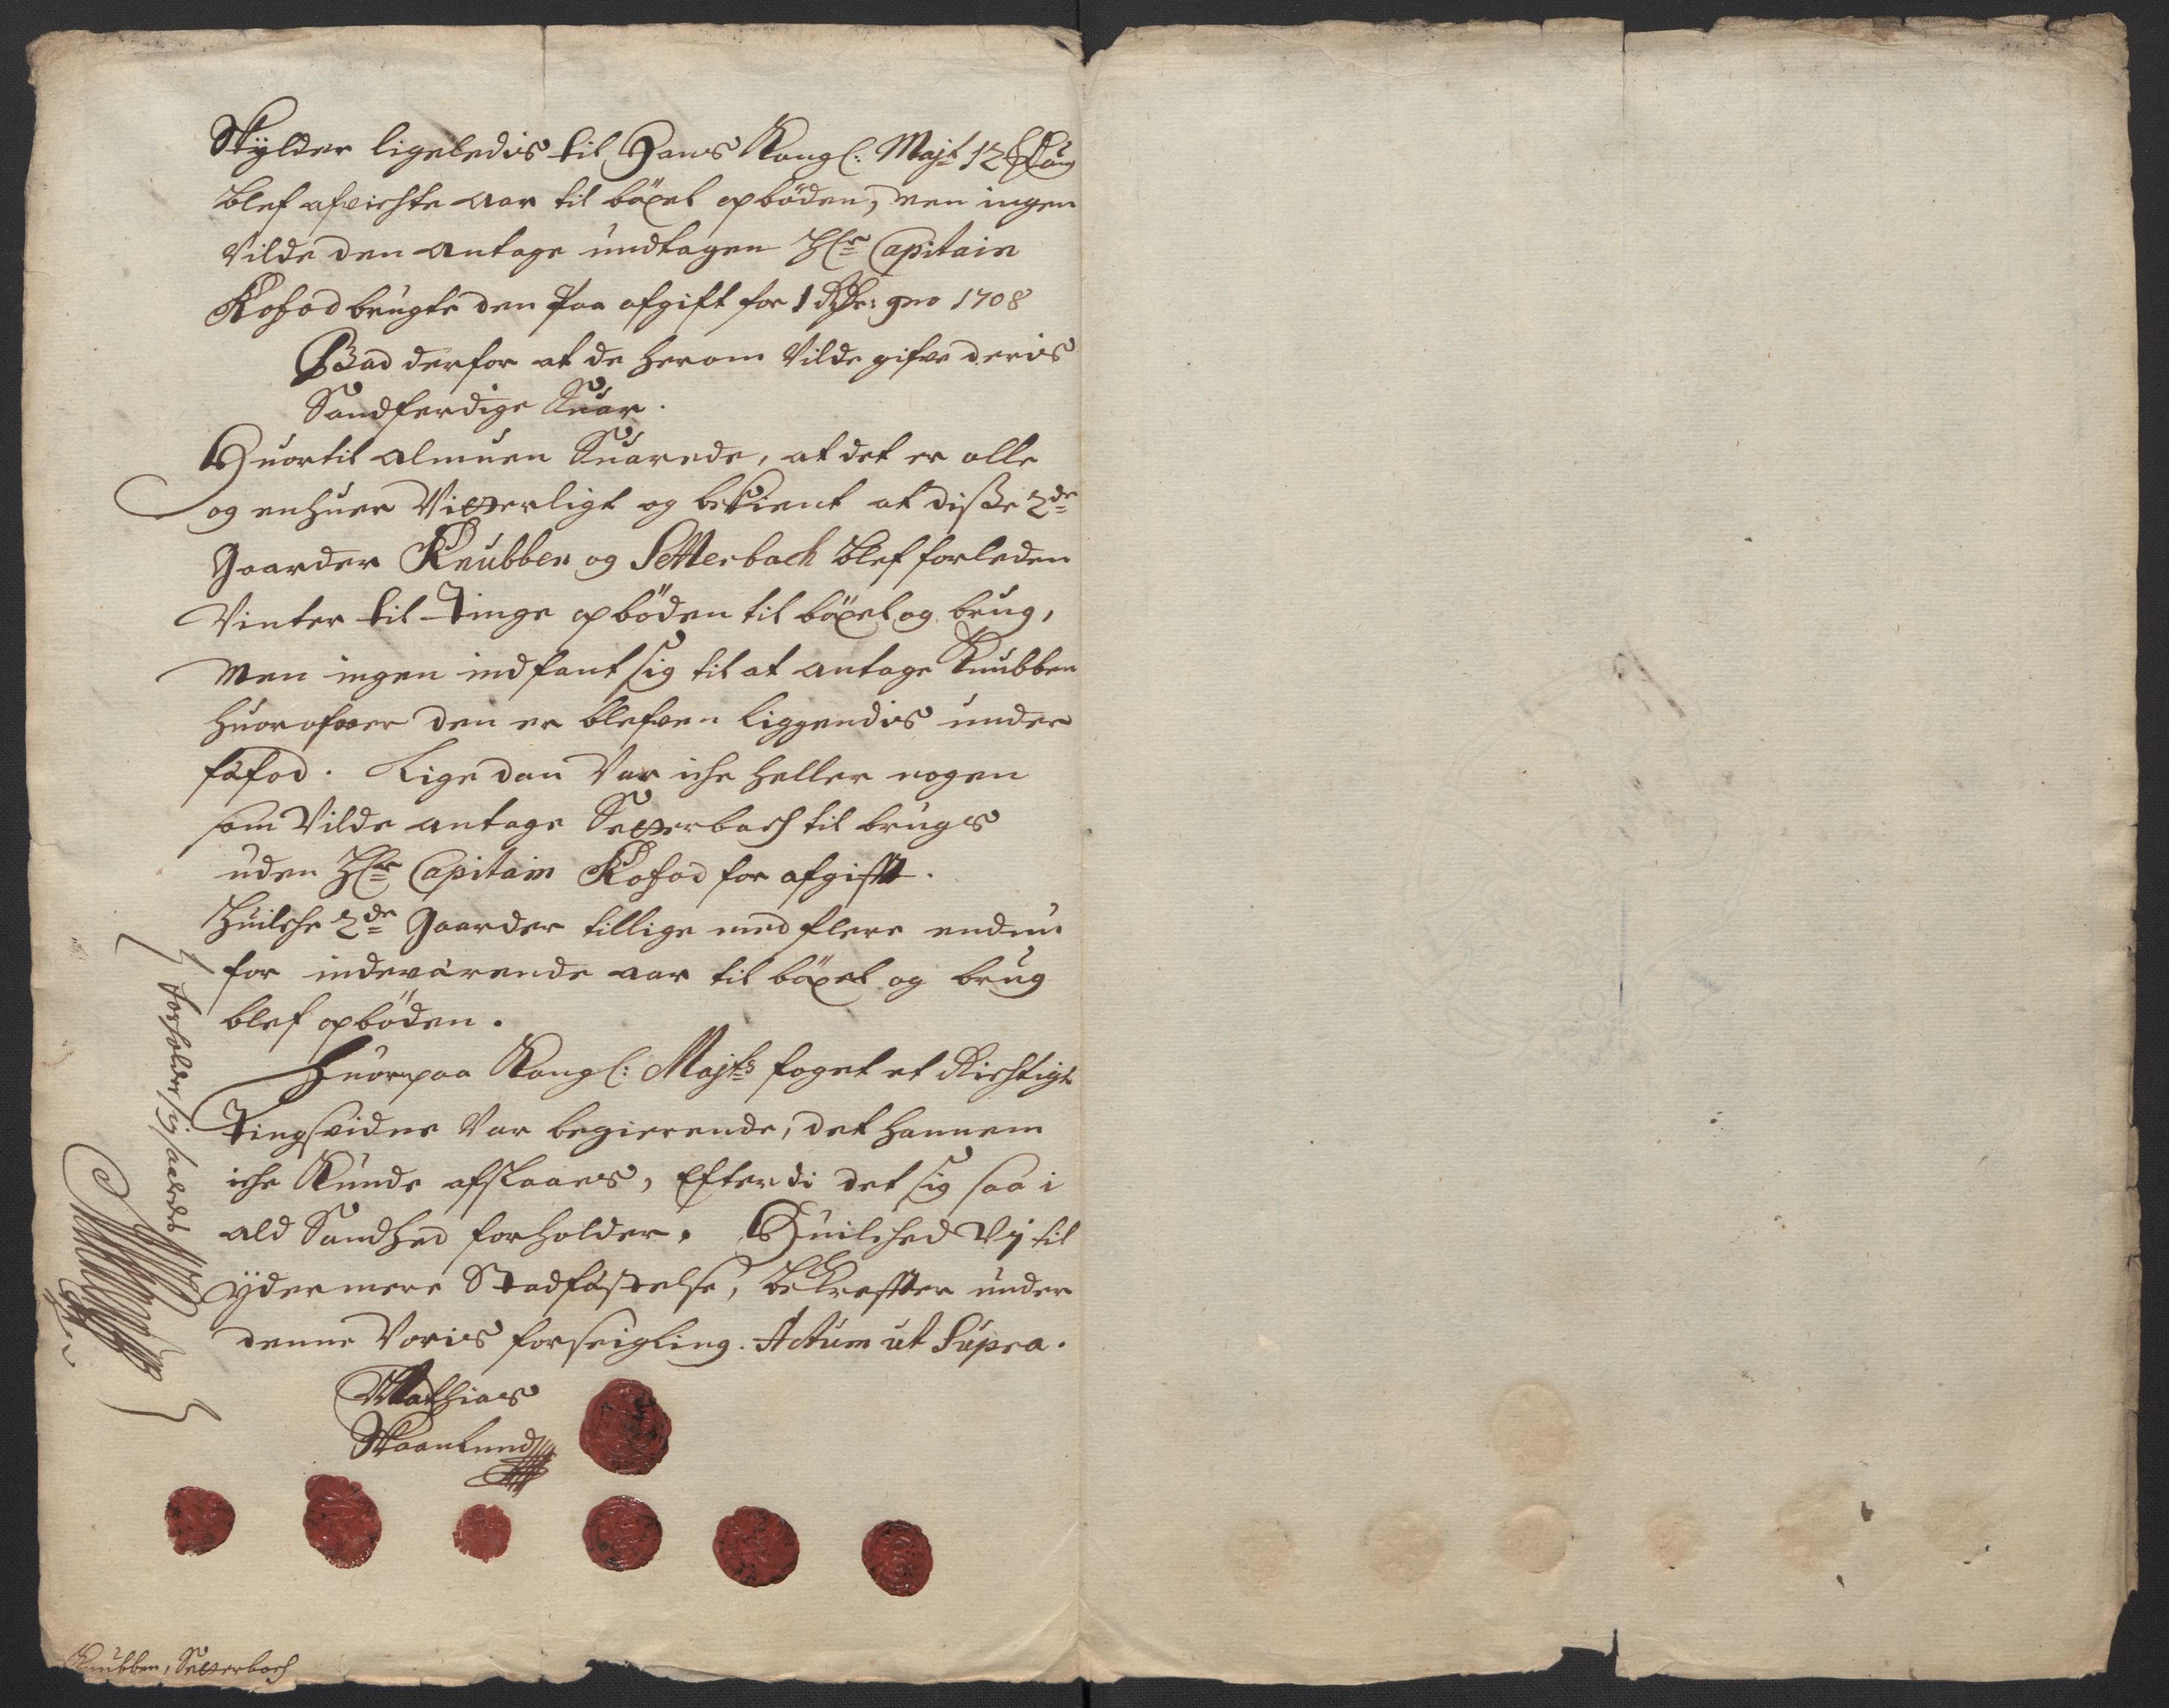 Skylder ligeledis til Hans Kongl: Majt 12
blef afvichte aar til böxel opböden, men ingen
Vilde den antage undtagen Hr Capitain
Kofod brugte den Paa afgift for 1 Rdr: pro 1708
Bad derfor at de herom Vilde gifve deris
Sandferdige Suar.
Huortil almuen Suarede, at det er alle
og enhuer Vitterligt og bekient at disse 2de
Gaarder Knubben og Setterbach blef forleden
Vinter til Tinge opböden til böxel og brug,
Men ingen indfant sig til at antage Knubben
huorofver den er blefven liggendis under
fäfod. Lige dan Var iche heller nogen
som Vilde antage Setterbach til brugs
uden Hr Capitain Kofod for afgifft.
Huilche 2de Gaarder tillige med flere endnu
for indevärende aar til böxel og brug
blef opböden.
Huorpaa Kongl: Majts foget et Richtigt
Tingsvidne Var begierende, det hannem
iche Kunde afslaaes, Efterdi det sig saa i
ald Sandhed forholder. Huilched Vj til
ydermere Stadfästelse, bekreffter under
denne Voris forseigling. Actum ut Supra.
Mathias
Skaanlund
forholder sig saaledes
Knubben, Setterbach